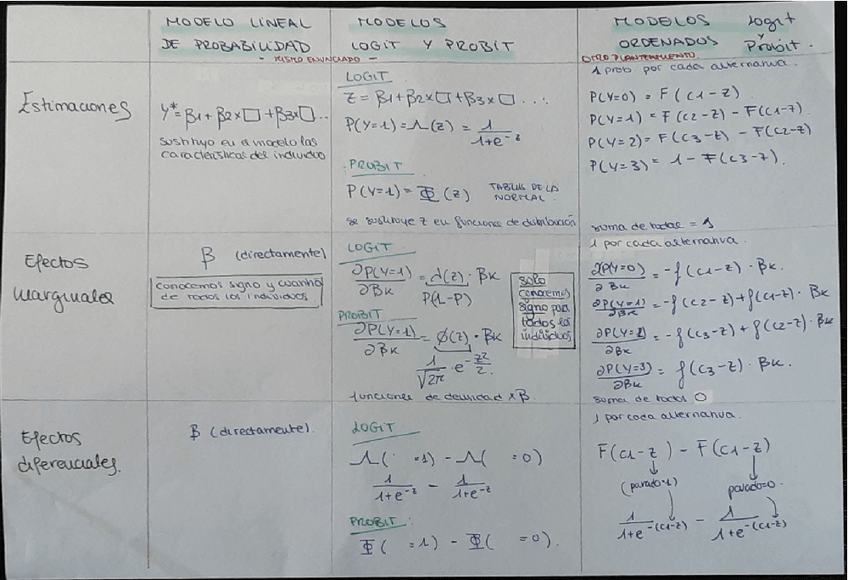 MODELO LINEAL
DE PROBABILIDAD
- MISMO ENUNCIADO -
MODELOS
LOGIT Y PROBIT
MODELOS logit
ORDENADOS y Probit.
OTRO PLANTEAMIENTO
Estimaciones
Y* = β1 + β2x□ + β3x□...
sustituyo en el modelo las
características del individuo
LOGIT
Z = β1 + β2x□ + β3x□...
P(Y=1) = Λ(z) = 1/1+e^-z
PROBIT
P(Y=1) = Φ(z) TABLAS DE LA
NORMAL
se sustituye z en funciones de distribución
1 prob por cada alternativa.
P(Y=0) = F(c1-z)
P(Y=1) = F(c2-z) - F(c1-z)
P(Y=2) = F(c3-z) - F(c2-z)
P(Y=3) = 1 - F(c3-z).
suma de todas = 1
Efectos
Marginales
β (directamente)
conocemos signo y cuantía
de todos los individuos
LOGIT
∂P(Y=1)/∂Bk = λ(z) · Bk
P(1-P)
PROBIT
∂P(Y=1)/∂Bk = ϕ(z) · Bk
1/√2π · e^-z²/2.
funciones de densidad x β
solo
conocemos
signo para
todos los
individuos
1 por cada alternativa.
∂P(Y=0)/∂Bk = -f(c1-z) · Bk.
∂P(Y=1)/∂Bk = -f(c2-z) + f(c1-z) · Bk
∂P(Y=2)/∂Bk = -f(c3-z) + f(c2-z) · Bk
∂P(Y=3)/∂Bk = f(c3-z) · Bk.
suma de todos 0
Efectos
diferenciales.
β (directamente).
LOGIT
Λ( =1) - Λ( =0)
1/1+e^-z - 1/1+e^-z
PROBIT
Φ( =1) - Φ( =0).
1 por cada alternativa.
F(c1-z) - F(c1-z)
(parado=1) parado=0.
1/1+e^-(c1-z) - 1/1+e^-(c1-z)